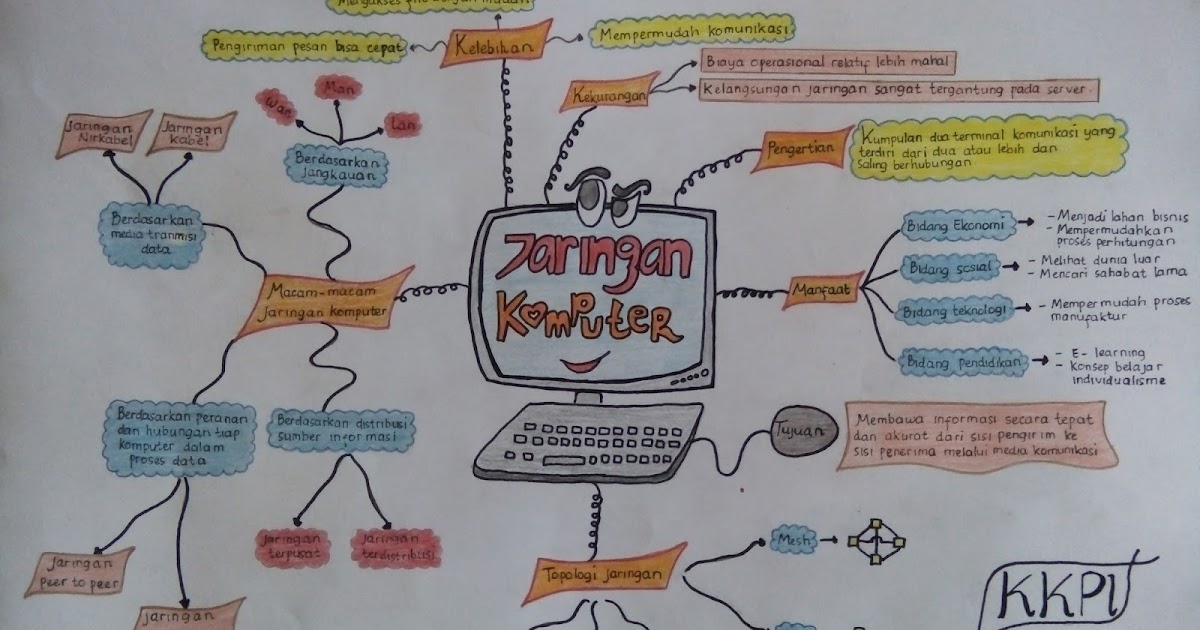 Mengakses file dengan mudah
Kelebihan
Pengiriman pesan bisa cepat
Mempermudah komunikasi
Kekurangan
Biaya operasional relatif lebih mahal
Kelangsungan jaringan sangat tergantung pada server.
Pengertian
Kumpulan dua terminal komunikasi yang
terdiri dari dua atau lebih dan
saling berhubungan.
Wan
Man
Lan
Berdasarkan
jangkauan
Jaringan
Nirkabel
Jaringan
kabel
Berdasarkan
media tranmisi
data
Macam-macam
jaringan komputer
Jaringan
Komputer
Manfaat
Bidang Ekonomi
- Menjadi lahan bisnis
- Mempermudahkan
proses perhitungan
Bidang sosial
- Melihat dunia luar
- Mencari sahabat lama
Bidang teknologi
- Mempermudah proses
manufaktur
Bidang pendidikan
- E-learning
- Konsep belajar
individualisme
Berdasarkan peranan
dan hubungan tiap
komputer dalam
proses data
Berdasarkan distribusi
sumber informasi
Jaringan
terpusat
Jaringan
terdistribusi
Jaringan
Peer to peer
jaringan
Tujuan
Membawa informasi secara tepat
dan akurat dari sisi pengirim ke
sisi penerima melalui media komunikasi
Topologi jaringan
Mesh
KKPI